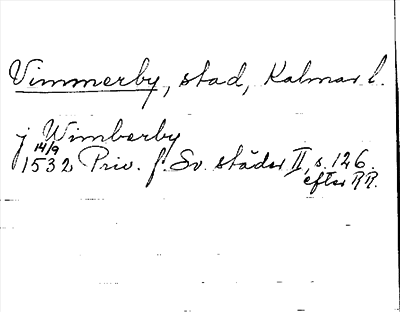 Vimmerby, stad, Kalmar l.
j Wimberby
14/9
1532 Priv. f. Sv. städer II, s. 126.
efter RR.